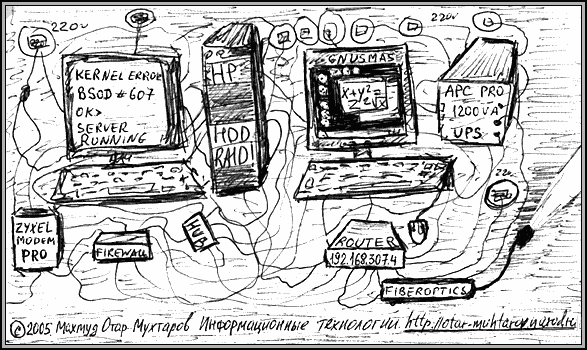 220v
220v
KERNEL ERROR
BSOD # 607
OK>
SERVER
RUNNING
HP
HDD
RAID1
GNUSMAS
x+y²=
APC PRO
1200VA
UPS
22v
ZYXEL
MODEM
PRO
FIREWALL
HUB
ROUTER
192.168.307.4
FIBEROPTICS
© 2005, Махмуд Отар Мухтаров Информационные технологии.